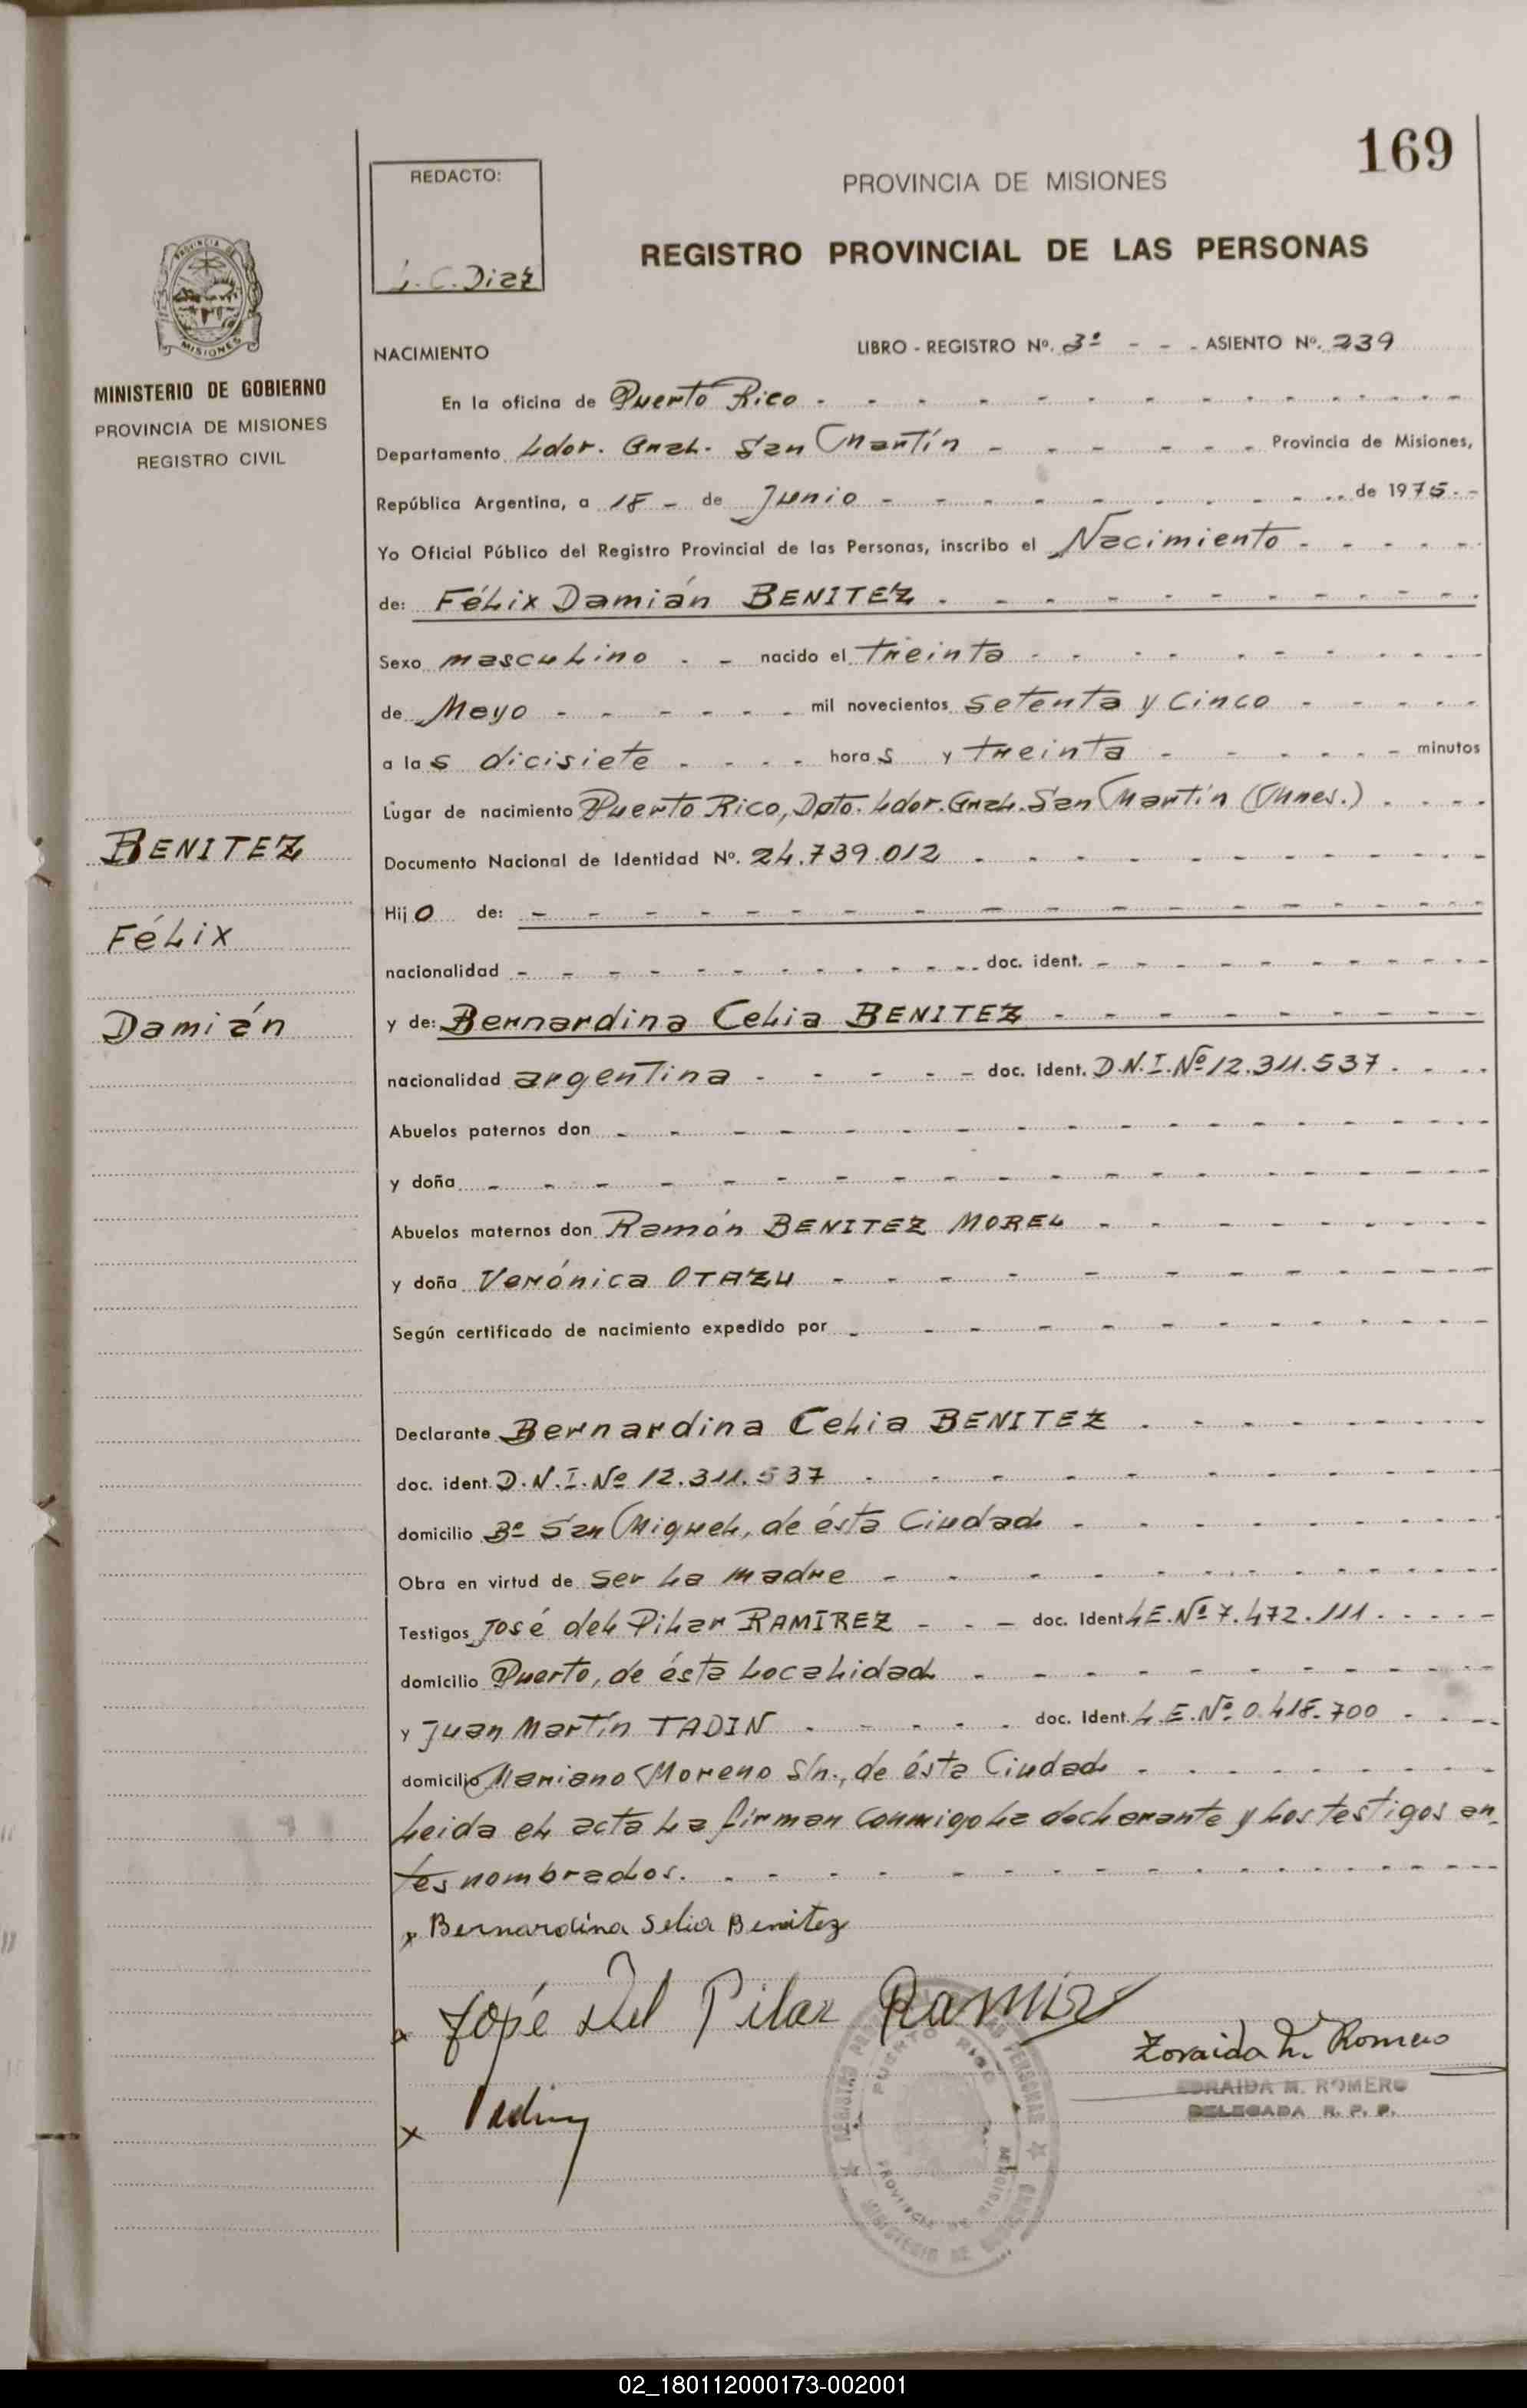 169
REDACTO:
L. C. Diaz
PROVINCIA DE MISIONES
REGISTRO PROVINCIAL DE LAS PERSONAS
PROVINCIA DE
MISIONES
MINISTERIO DE GOBIERNO
PROVINCIA DE MISIONES
REGISTRO CIVIL
BENITEZ
Félix
Damián
NACIMIENTO LIBRO - REGISTRO Nº. 3º - - - ASIENTO Nº. 239
En la oficina de Puerto Rico
Departamento Ldor. Gral. San Martín Provincia de Misiones,
República Argentina, a 18 - de Junio de 1975.-
Yo Oficial Público del Registro Provincial de las Personas, inscribo el Nacimiento
de: Félix Damián BENITEZ
Sexo masculino nacido el treinta
de Mayo mil novecientos setenta y cinco
a las dicisiete horas y treinta minutos
Lugar de nacimiento Puerto Rico, Dpto. Ldor. Gral. San Martín (Mnes.)
Documento Nacional de Identidad Nº. 24.739.012
Hijo de:
nacionalidad doc. ident.
y de: Bernardina Celia BENITEZ
nacionalidad argentina doc. ident. D.N.I. Nº 12.311.537
Abuelos paternos don
y doña
Abuelos maternos don Ramón BENITEZ MOREL
y doña Verónica OTAZU
Según certificado de nacimiento expedido por
Declarante Bernardina Celia BENITEZ
doc. ident. D.N.I. Nº 12.311.537
domicilio Bº San Miguel, de ésta Ciudad
Obra en virtud de ser la madre
Testigos José del Pilar RAMIREZ doc. Ident L.E. Nº 7.472.111
domicilio Puerto, de ésta localidad
y Juan Martín TADIN doc. Ident. L.E. Nº 0.418.700
domicilio Mariano Moreno s/n., de ésta Ciudad
Leida el acta la firman conmigo la declarante y los testigos an-
tes nombrados.
x Bernardina Selia Benitez
x José Del Pilar Ramirez
Zoraida M. Romero
ZORAIDA M. ROMERO
DELEGADA R. P. P.
x Tadin
REGISTRO PROVINCIAL DE LAS PERSONAS
PUERTO RICO
PROVINCIA DE MISIONES
MINISTERIO DE GOBIERNO
02_180112000173-002001